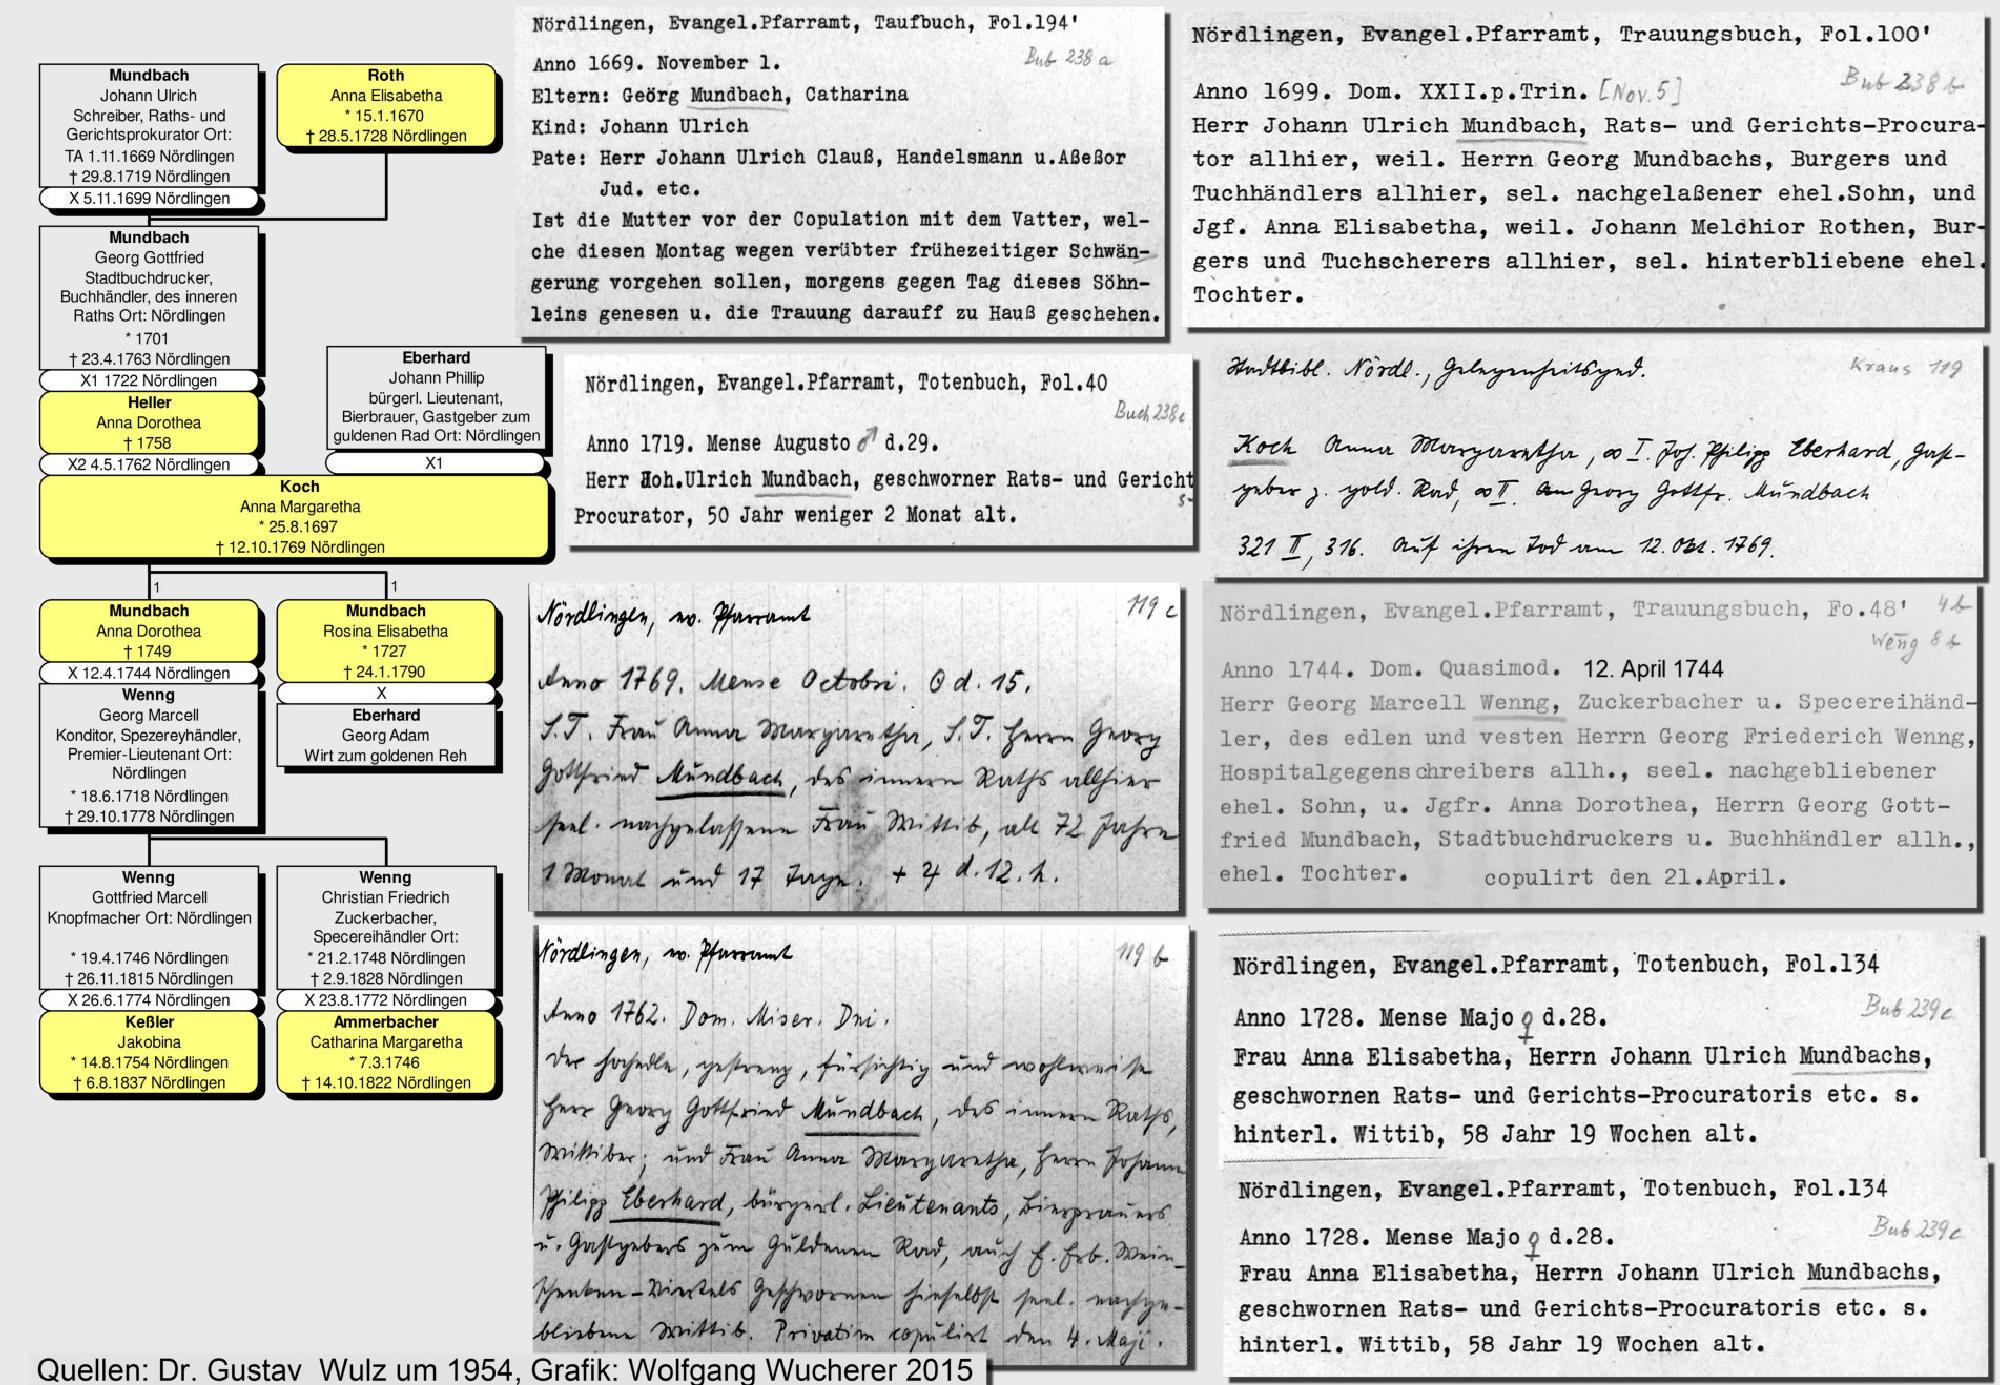 Mundbach
Johann Ulrich
Schreiber, Raths- und
Gerichtsprokurator Ort:
TA 1.11.1669 Nördlingen
† 29.8.1719 Nördlingen
X 5.11.1699 Nördlingen
Roth
Anna Elisabetha
* 15.1.1670
† 28.5.1728 Nördlingen
Mundbach
Georg Gottfried
Stadtbuchdrucker,
Buchhändler, des inneren
Raths Ort: Nördlingen
* 1701
† 23.4.1763 Nördlingen
X1 1722 Nördlingen
Heller
Anna Dorothea
† 1758
X2 4.5.1762 Nördlingen
Eberhard
Johann Phillip
bürgerl. Lieutenant,
Bierbrauer, Gastgeber zum
guldenen Rad Ort: Nördlingen
X1
Koch
Anna Margaretha
* 25.8.1697
† 12.10.1769 Nördlingen
1
1
Mundbach
Anna Dorothea
† 1749
X 12.4.1744 Nördlingen
Wenng
Georg Marcell
Konditor, Spezereyhändler,
Premier-Lieutenant Ort:
Nördlingen
* 18.6.1718 Nördlingen
† 29.10.1778 Nördlingen
Mundbach
Rosina Elisabetha
* 1727
† 24.1.1790
X
Eberhard
Georg Adam
Wirt zum goldenen Reh
Wenng
Gottfried Marcell
Knopfmacher Ort: Nördlingen
* 19.4.1746 Nördlingen
† 26.11.1815 Nördlingen
X 26.6.1774 Nördlingen
Keßler
Jakobina
* 14.8.1754 Nördlingen
† 6.8.1837 Nördlingen
Wenng
Christian Friedrich
Zuckerbacher,
Specereihändler Ort:
* 21.2.1748 Nördlingen
† 2.9.1828 Nördlingen
X 23.8.1772 Nördlingen
Ammerbacher
Catharina Margaretha
* 7.3.1746
† 14.10.1822 Nördlingen
Nördlingen, Evangel.Pfarramt, Taufbuch, Fol.194'
Bub 238 a
Anno 1669. November 1.
Eltern: Geörg Mundbach, Catharina
Kind: Johann Ulrich
Pate: Herr Johann Ulrich Clauß, Handelsmann u.Aßeßor
Jud. etc.
Ist die Mutter vor der Copulation mit dem Vatter, wel-
che diesen Montag wegen verübter frühezeitiger Schwän-
gerung vorgehen sollen, morgens gegen Tag dieses Söhn-
leins genesen u. die Trauung darauff zu Hauß geschehen.
Nördlingen, Evangel.Pfarramt, Trauungsbuch, Fol.100'
Bub 238 b
Anno 1699. Dom. XXII.p.Trin. [Nov.5]
Herr Johann Ulrich Mundbach, Rats- und Gerichts-Procura-
tor allhier, weil. Herrn Georg Mundbachs, Burgers und
Tuchhändlers allhier, sel. nachgelaßener ehel.Sohn, und
Jgf. Anna Elisabetha, weil. Johann Melchior Rothen, Bur-
gers und Tuchscherers allhier, sel. hinterbliebene ehel.
Tochter.
Nördlingen, Evangel.Pfarramt, Totenbuch, Fol.40
Buch 238c
Anno 1719. Mense Augusto ♂ d.29.
Herr Joh.Ulrich Mundbach, geschworner Rats- und Gericht
s-
Procurator, 50 Jahr weniger 2 Monat alt.
Stadtbibl. Nördl., Gelegenheitsged.
Kraus 119
Koch Anna Margaretha, ∞ I. Joh. Philipp Eberhard, Gast-
geber z. gold. Rad, ∞ II. Georg Gottfr. Mundbach
321 II, 316. Auf ihren Tod am 12. Okt. 1769.
Nördlingen, ev. Pfarramt
119 c
Anno 1769. Mense Octobri. ☉ d. 15.
S.T. Frau Anna Margaretha, S.T. Herrn Georg
Gottfried Mundbach, des innern Raths allhier
seel. nachgelassene Frau Wittib, alt 72 Jahre
1 Monat und 17 Tage. + ♃ d. 12. h.
Nördlingen, Evangel.Pfarramt, Trauungsbuch, Fo.48'
4b
Weng 8b
Anno 1744. Dom. Quasimod. 12. April 1744
Herr Georg Marcell Wenng, Zuckerbacher u. Specereihänd-
ler, des edlen und vesten Herrn Georg Friederich Wenng,
Hospitalgegenschreibers allh., seel. nachgebliebener
ehel. Sohn, u. Jgfr. Anna Dorothea, Herrn Georg Gott-
fried Mundbach, Stadtbuchdruckers u. Buchhändler allh.,
ehel. Tochter. copulirt den 21.April.
Nördlingen, ev. Pfarramt
119 b
Anno 1762. Dom. Miser. Dni.
Der hochedle, gestreng, fürsichtig und wohlweise
Herr Georg Gottfried Mundbach, des innern Raths,
Wittiber; und Frau Anna Margaretha, Herrn Johann
Philipp Eberhard, bürgerl. Lieutenants, Bierprauers
u. Gastgebers zum Guldenen Rad, auch E. Erb. Wein-
schenken-Viertels Geschwornen hieselbst seel. nachge-
bliebene Wittib. Privatim copulirt den 4. Maji.
Nördlingen, Evangel.Pfarramt, Totenbuch, Fol.134
Bub 239c
Anno 1728. Mense Majo ♀ d.28.
Frau Anna Elisabetha, Herrn Johann Ulrich Mundbachs,
geschwornen Rats- und Gerichts-Procuratoris etc. s.
hinterl. Wittib, 58 Jahr 19 Wochen alt.
Nördlingen, Evangel.Pfarramt, Totenbuch, Fol.134
Bub 239c
Anno 1728. Mense Majo ♀ d.28.
Frau Anna Elisabetha, Herrn Johann Ulrich Mundbachs,
geschwornen Rats- und Gerichts-Procuratoris etc. s.
hinterl. Wittib, 58 Jahr 19 Wochen alt.
Quellen: Dr. Gustav Wulz um 1954, Grafik: Wolfgang Wucherer 2015